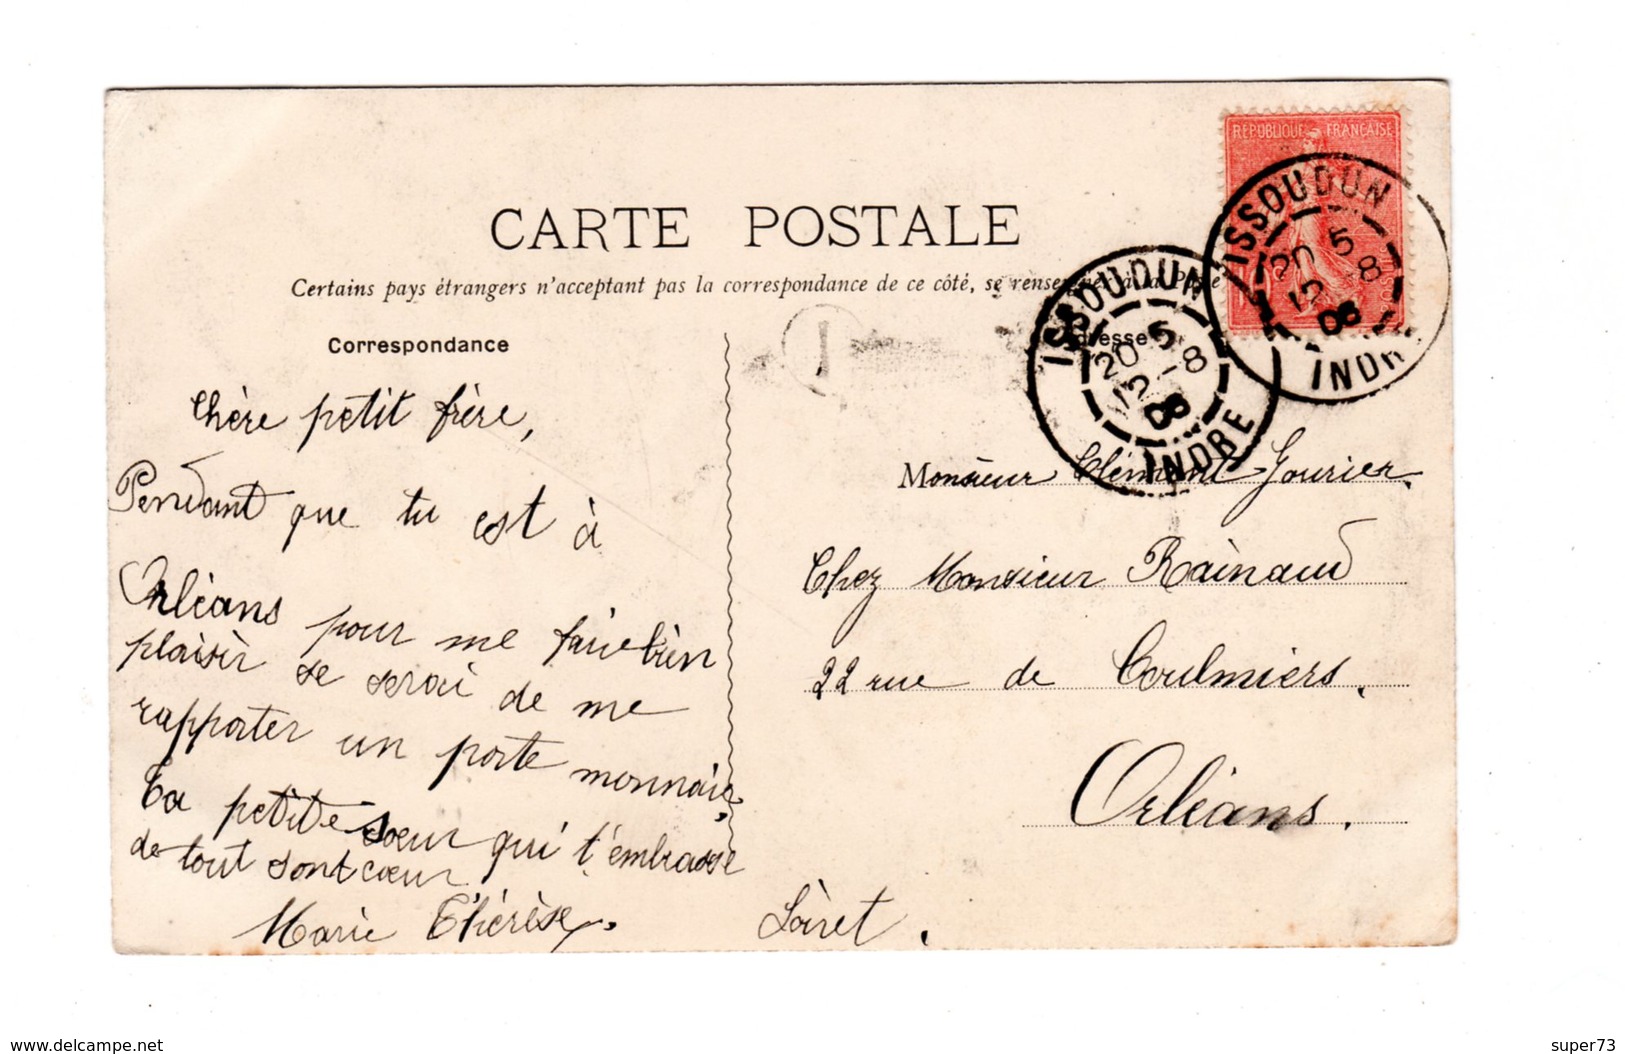 RÉPUBLIQUE FRANÇAISE
ISSOUDUN
20 5
12 -8
06
INDRE
CARTE POSTALE
Certains pays étrangers n'acceptant pas la correspondance de ce côté, se renseigner à la Poste
ISSOUDUN
20 5
12 -8
06
INDRE
Correspondance
Adresse
Chère petit frère,
Pendant que tu est à
Orléans pour me faire bien
plaisir se serai de me
rapporter un porte monnaie.
Ta petite soeur qui t'embrasse
de tout sont cœur
Marie Thérèse.
Monsieur Clément Gourier.
Chez Monsieur Rainaud
22 rue de Coulmiers.
Orléans.
Loiret.
www.delcampe.net
super73